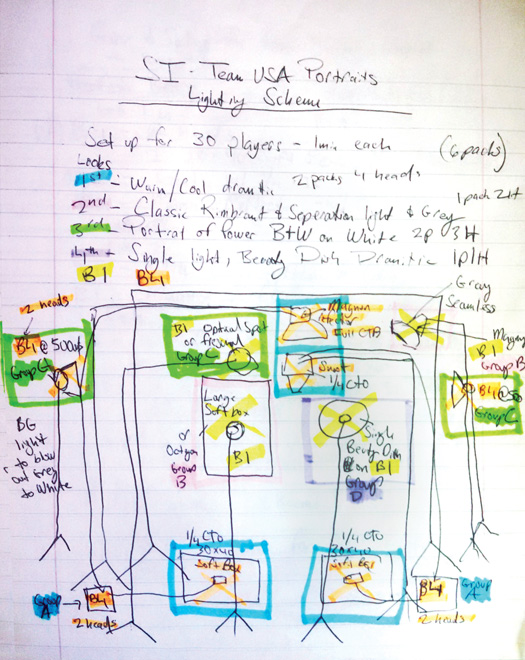 SI - Team USA Portraits
Lighting Scheme
Set up for 30 players - 1min each (6 packs)
Looks
1st - Warm/Cool dramtic 2 packs 4 heads
2nd - Classic Rimbrant & Seperation light & Grey 1 pack 2H
3rd - Portrat of Power B+W on White 2p 3H
4th - Single light, Beauty Dish Dramitic 1p1H
B1 B4
2 heads
B4 @ 500ws
Group C
B1 Optical Spot
or fresnel
Group C
Magnum
Reflector
Full CTB
Snoot
1/4 CTO
Gray
Seamless
B1
Group B
B4 @ 500
Group C
BG
light
to blow
out grey
to White
Large
Soft box
or Octagon
Group
B
B1
Single
Beauty Dish
on B1
Group
D
1/4 CTO
30x40
Soft Box
1/4 CTO
30x40
Soft Box
Group
A
B4
2 heads
B4
Group
A
2 heads